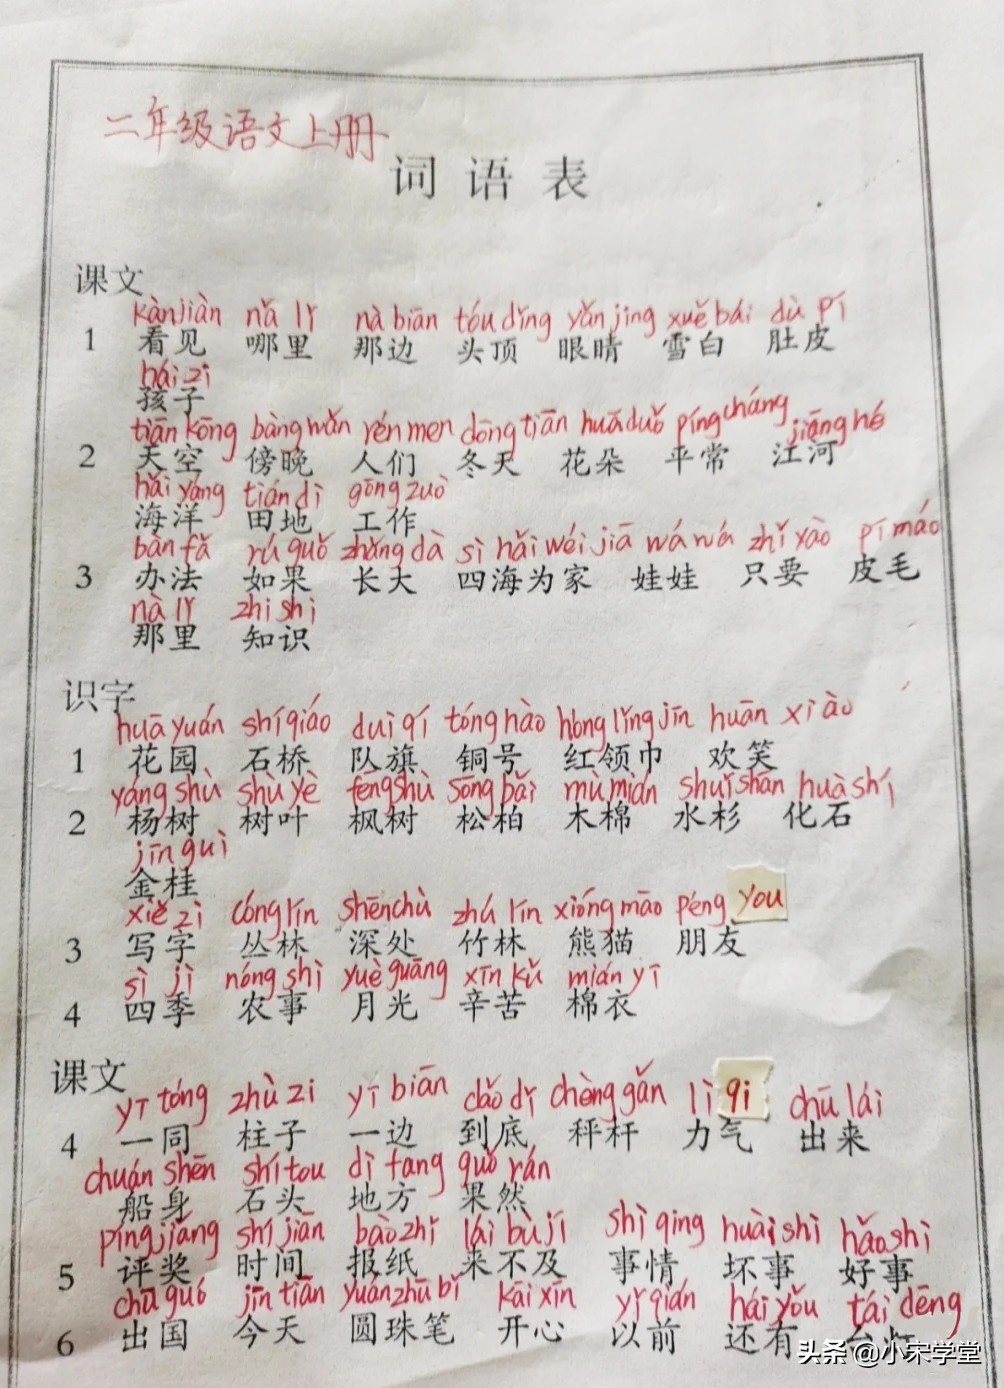 二年级语文上册
词语表
课文
kànjiàn nǎ lǐ nà biān tóu dǐng yǎn jing xuě bái dù pí
1 看见 哪里 那边 头顶 眼睛 雪白 肚皮
hái zi
孩子
tiān kōng bàng wǎn rén men dōng tiān huā duǒ píng cháng jiāng hé
2 天空 傍晚 人们 冬天 花朵 平常 江河
hǎi yáng tián dì gōng zuò
海洋 田地 工作
bàn fǎ rú guǒ zhǎng dà sì hǎi wéi jiā wá wá zhǐ yào pí máo
3 办法 如果 长大 四海为家 娃娃 只要 皮毛
nà lǐ zhī shi
那里 知识
识字
huā yuán shí qiáo duì qí tóng hào hóng lǐng jīn huān xiào
1 花园 石桥 队旗 铜号 红领巾 欢笑
yáng shù shù yè fēng shù sōng bǎi mù mián shuǐ shān huà shí
2 杨树 树叶 枫树 松柏 木棉 水杉 化石
jīn guì
金桂
xiě zì cóng lín shēn chù zhú lín xióng māo péng you
3 写字 丛林 深处 竹林 熊猫 朋友
sì jì nóng shì yuè guāng xīn kǔ mián yī
4 四季 农事 月光 辛苦 棉衣
课文
yī tóng zhù zi yī biān dǎo dǐ chèng gǎn lì qi chū lái
4 一同 柱子 一边 到底 秤杆 力气 出来
chuán shēn shí tou dì fang guǒ rán
船身 石头 地方 果然
píng jiǎng shí jiān bào zhǐ lái bù jí shì qing huài shì hǎo shì
5 评奖 时间 报纸 来不及 事情 坏事 好事
chū guó jīn tiān yuán zhū bǐ kāi xīn yǐ qián hái yǒu tái dēng
6 出国 今天 圆珠笔 开心 以前 还有 台灯
头条 @小宋学堂